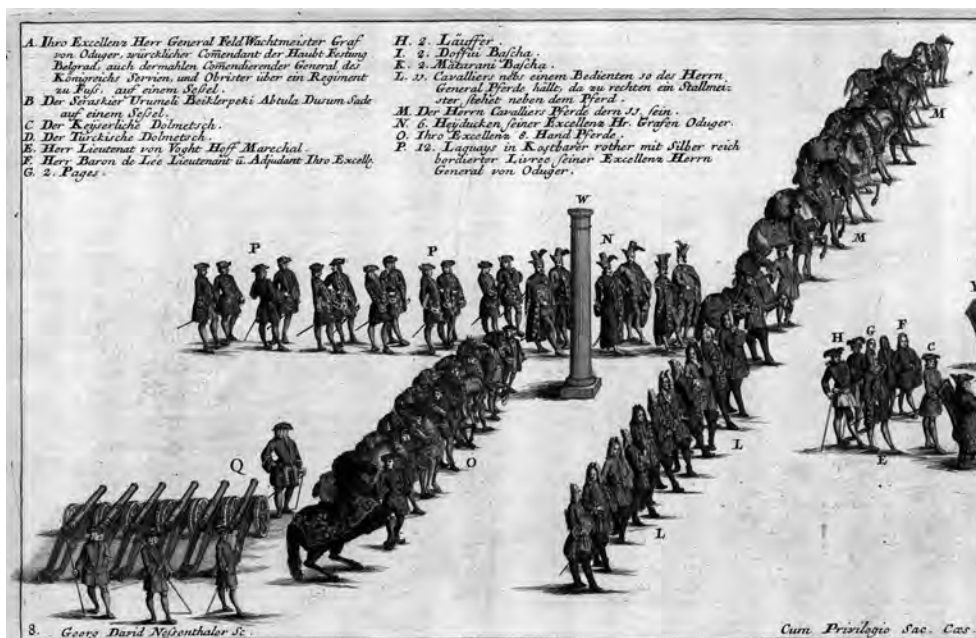 A. Ihro Excellenz Herr General Feld Wachtmeister Graf
von Oduger, würcklicher Com̄endant der Haubt-Festung
Belgrad, auch dermahlen Com̄endierender General des
Königreichs Servien, und Obrister über ein Regiment
zu Fuss, auf einem Seßel.
B Der Seraskier Urumeli Beiklerpeki Abtula Dusum Sade
auf einem Seßel.
C Der Keyserliche Dolmetsch.
D. Der Türckische Dolmetsch.
E. Herr Lieutenat von Voght Hoff Marechal.
F. Herr Baron de Lee Lieutenant ū. Adjudant Ihro Excelle.
G. 2. Pages.
H. 2. Läuffer.
I. 2. Doffui Bascha.
K. 2. Matarani Bascha.
L. 11. Cavalliers nebs einem Bedienten so des Herrn
General Pferde hällt, da zu rechten ein Stallmei-
ster stehet neben dem Pferd.
M. Der Herrn Cavalliers Pferde dern 11. sein.
N. 6. Heyducken seiner Excellenz Hr. Grafen Oduger.
O. Ihro Excellenz 8. Hand Pferde.
P. 12. Laquays in Kostbarer rother mit Silber reich
bordierter Livree seiner Excellenz Herrn
General von Oduger.
M
W
P
P
N
M
H
G
F
C
L
E
Q
O
L
8. Georg David Nessenthaler Sc.
Cum Privilegio Sac. Cæs